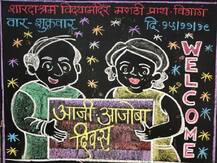 शारदाश्रम विद्यामंदिर मराठी प्राथ. विभाग
वार- शुक्रवार
दि.१५/११/१९
WELCOME
आजी आजोबा
दिवस